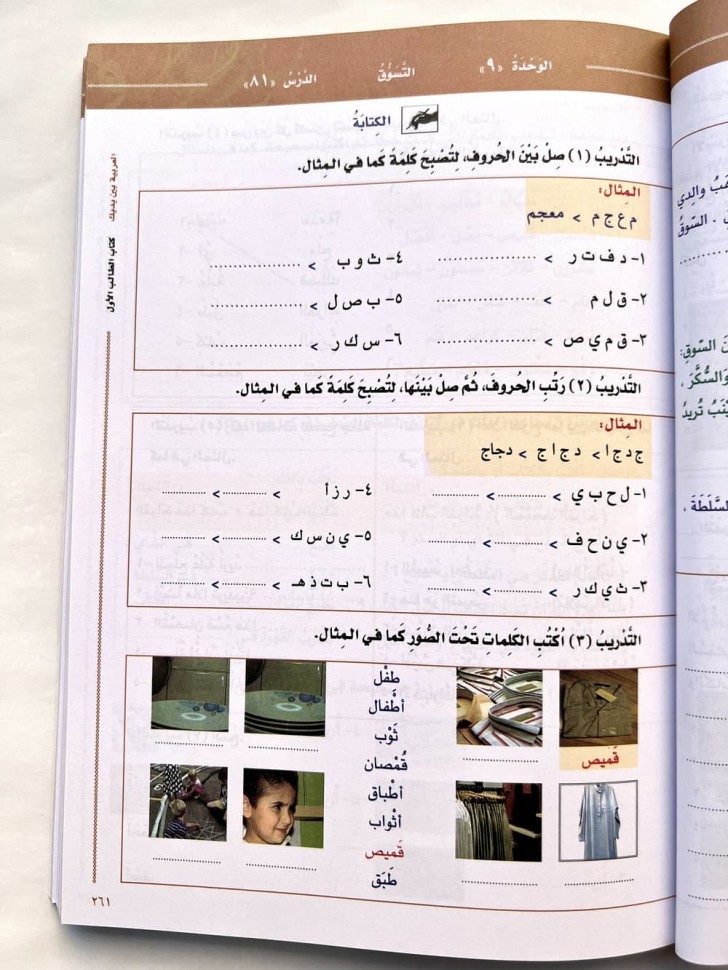 الوَحْدَةُ «٩» التَّسَوُّقُ الدَّرْسُ «٨١»
الكِتابَةُ
التَّدْرِيبُ (١) صِلْ بَيْنَ الحُروفِ، لِتُصْبِحَ كَلِمَةً كَما في المِثالِ.
المِثال:
م ع ج م > معجم
١- د ف ت ر > ..................
٤- ث و ب > ..................
٢- ق ل م > ..................
٥- ب ص ل > ..................
٣- ق م ي ص > ..................
٦- س ك ر > ..................
التَّدْرِيبُ (٢) رَتِّبِ الحُروفَ، ثُمَّ صِلْ بَيْنَها، لِتُصْبِحَ كَلِمَةً كَما في المِثالِ.
المِثال:
ج د ج ا > د ج ا ج > دجاج
١- ل ح ب ي > ............ > ............
٤- ر ز أ > ............ > ............
٢- ي ن ح ف > ............ > ............
٥- ي ن س ك > ............ > ............
٣- ث ي ك ر > ............ > ............
٦- ب ت ذ هـ > ............ > ............
التَّدْرِيبُ (٣) اُكْتُبِ الكَلِماتِ تَحْتَ الصُّوَرِ كَما في المِثالِ.
طفْل
أطْفال
ثَوْب
قُمْصان
أطْباق
أثْواب
قَميص
طَبَق
قَميص
العربية بين يديك كتاب الطالب الأول
٢٦١